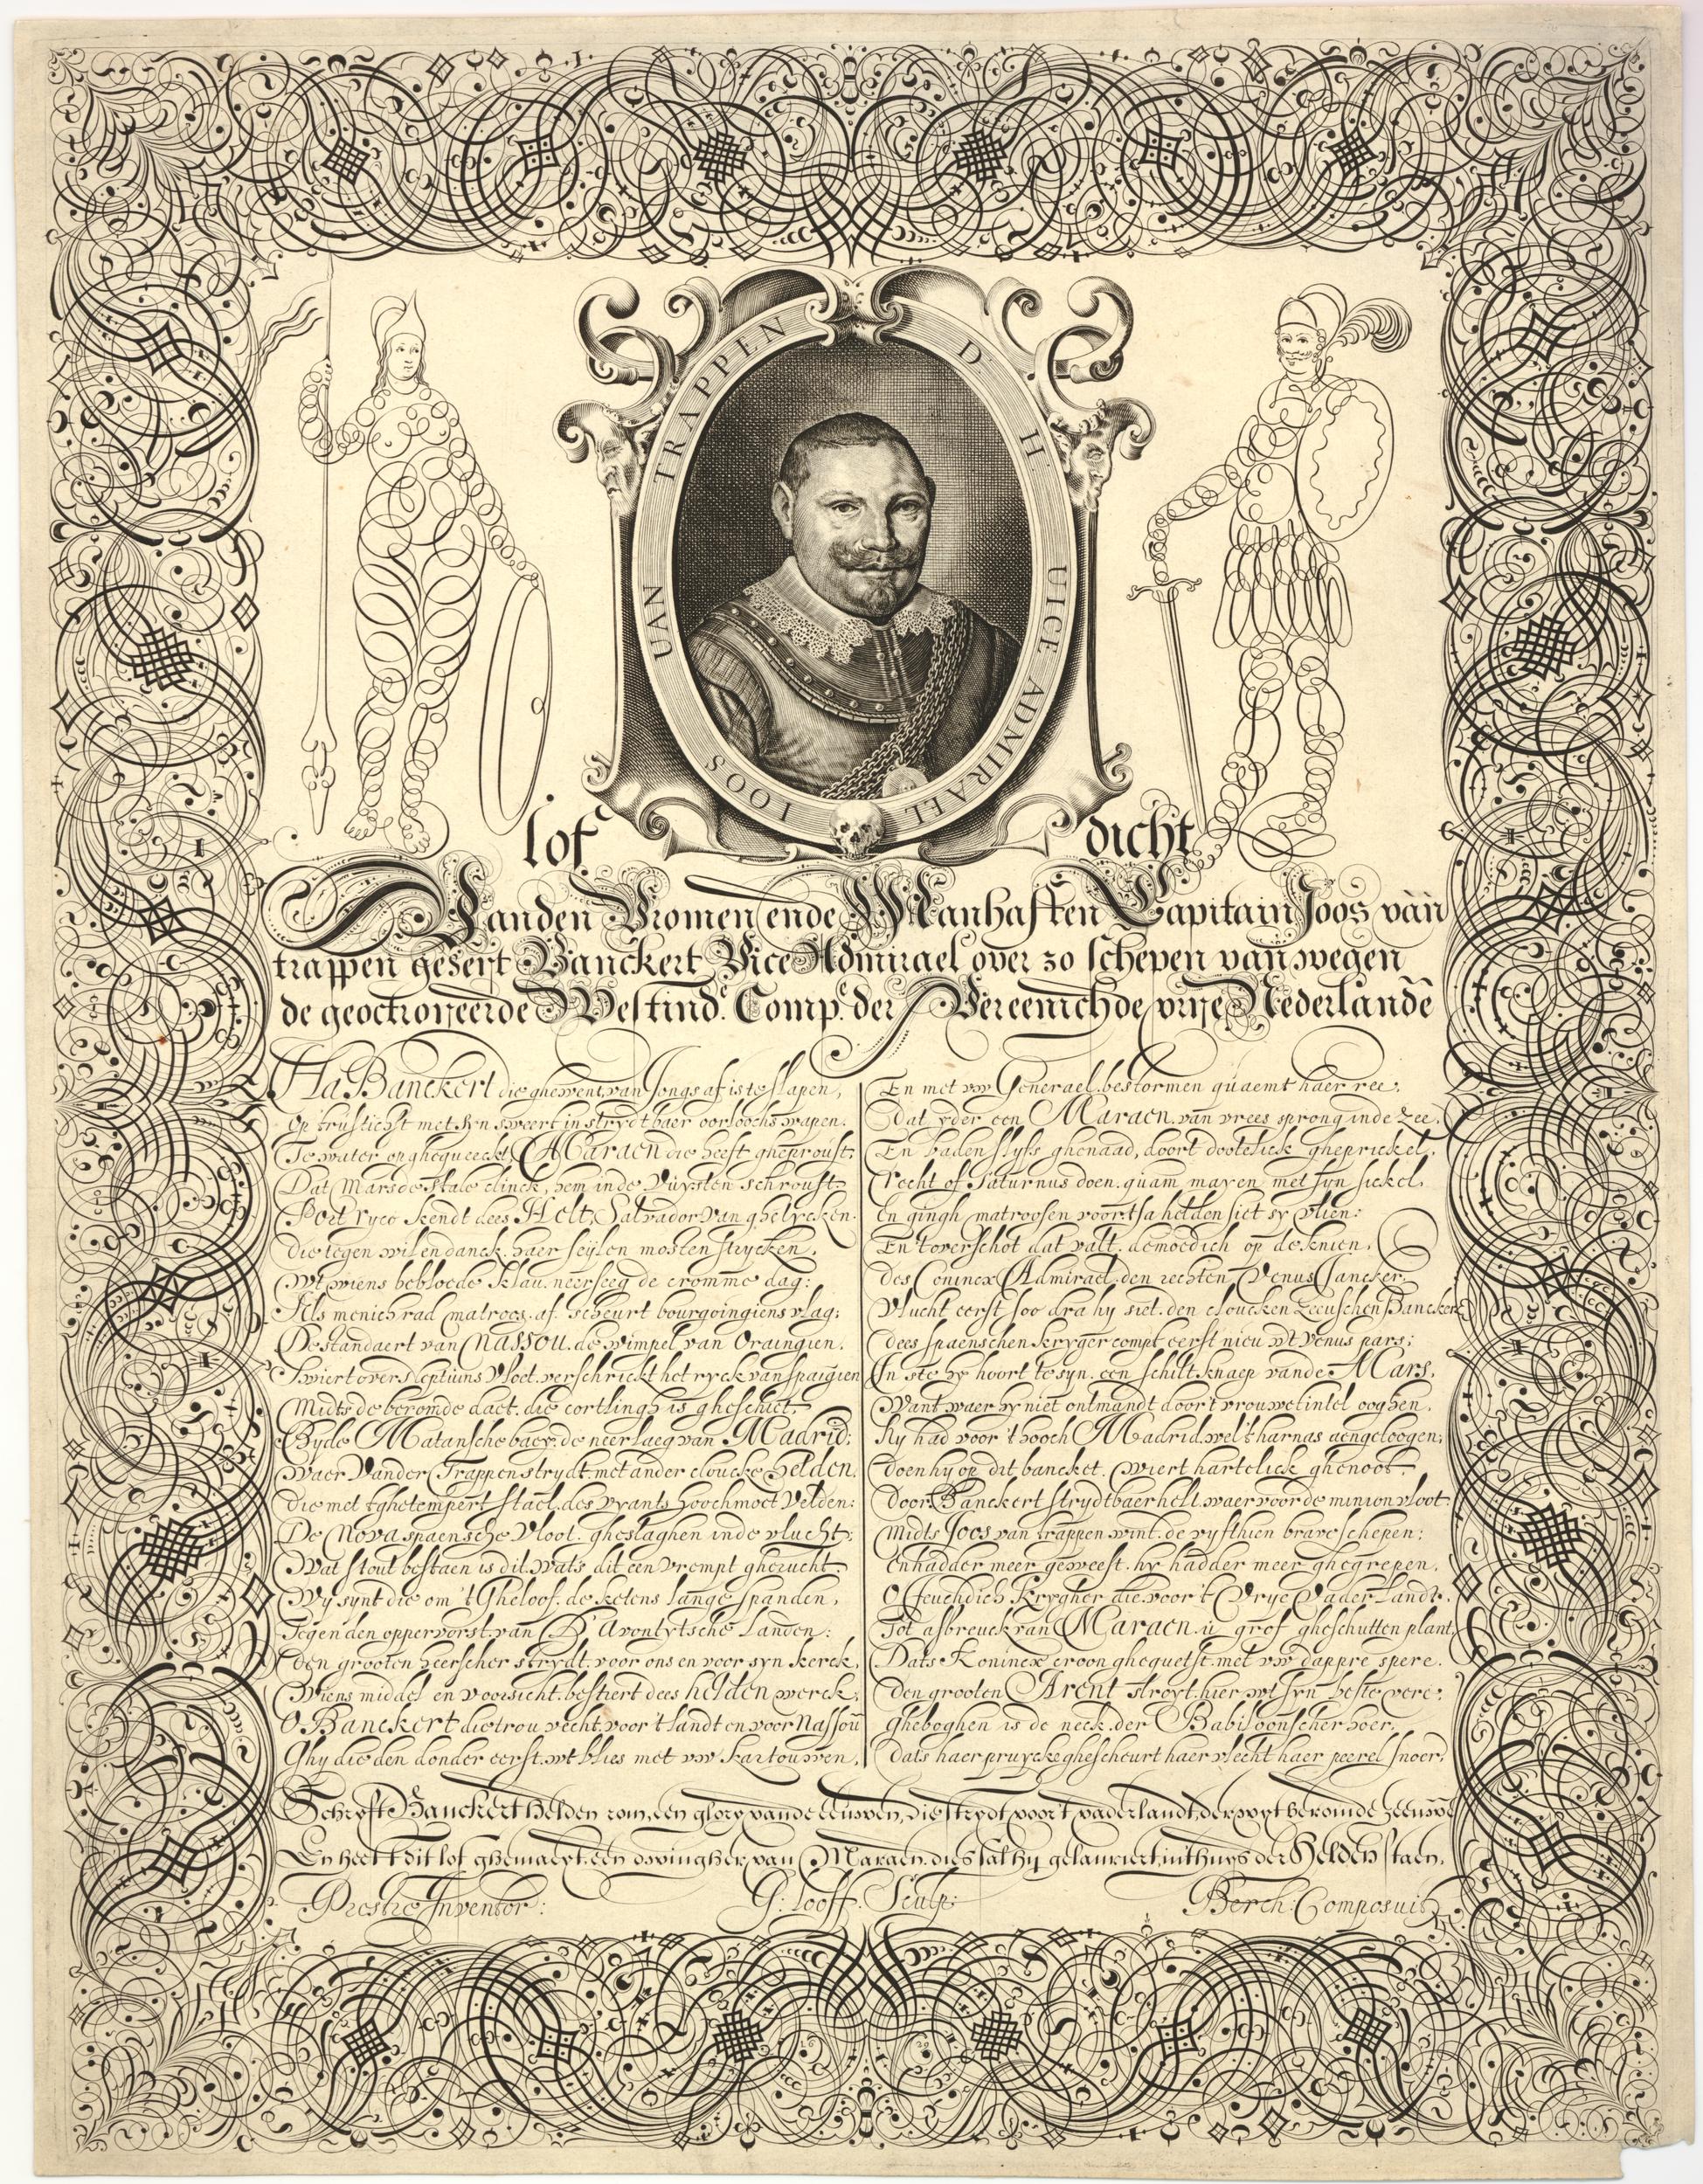 D' H. UICE ADMIRAEL IOOS UAN TRAPPEN
lof dicht
Vanden Vromen ende Manhaften Capitain Joos van
trappen geseyt Banckert Vice Admirael over 30 schepen van wegen
de geoctroyeerde Westind. Comp. der Vereenichde vrije Nederlande
Ha Banckert die ghewent, van Jongs af is te slapen,
Op trustichst met syn sweert in strydtbaer oorloochs wapen.
Te water op ghequeeckt, Maraen die heeft gheproust,
Dat Mars de stale clinck, hem inde Vuysten schroust.
Port ryco kendt dees Helt, Salvador van ghelycken.
die tegen wil en danck. haer seylen mosten strycken,
wt wiens bebloede klau. neerseeg de cromme dag:
Als menich rad matroos. af scheurt bourgoingiens vlag;
De standaert van Nassou. de wimpel van Oraingien,
Swiert over Neptuins Vloet. verschrickt het ryck van spaigien
Midts de beromde daet. die cortlingh is gheschiet,
Byde Matansche baey. de neerlaeg van Madrid;
waer Vander Trappen strydt. met ander cloucke helden,
die met tghetempert stael. des vyants hoochmoet velden:
De Nova spaensche Vloot. gheslaghen inde vlucht;
Wat stout bestaen is dit. wats dit een vrempt gherucht,
Wy synt die om 't Gheloof. de ketens lange spanden,
Tegen den oppervorst. van D' Avontytsche Landen:
den grooten heerscher strydt. voor ons en voor syn kerck,
Wiens middel en voorsicht. bestiert dees helden werck,
O Banckert die trou vecht, voor 't landt en voor Nassou
Ghy die den donder eerst. wt blies met uw kartouwen,
En met uw Generael. bestormen quaemt haer ree;
dat yder een Maraen. van vrees sprong inde zee,
En baden lyfs ghenaad, doort dootelick gheprickel,
recht of Saturnus doen. quam mayen met syn sickel,
En gingh matroosen voort. sa helden siet sy vlien:
En t overschot dat valt. demoedich op de knien,
des Coninex Admirael. den rechten Venus Jancker,
Vlucht eerst soo dra hy siet. den cloucken zeeuschen Bancker
dees spaenschen kryger compt eerst nieu wt Venus pars;
In ste hy hoort te syn. een schilt knaep vande Mars,
Want waer hy niet ontmandt door t vrouwelintel ooghen,
Hy had voor 't hooch Madrid. wel 't harnas aengetoogen,
doen hy op dit bancket. wiert hartelick ghenoot,
door Banckert strydtbaer helt. waer voor de minion vloot
Midts Joos van trappen wint. de vyfthien brave schepen;
en hadder meer geweest. hy hadder meer ghegrepen,
O Jeuchdich Krygher die voor 't Vrye Vaderlandt,
Tot asbreuck van Maraen. u grof gheschutten plant,
Dats Koninex croon ghequetst. met uw dappre spere.
den grooten Arent stroyt. hier wt syn beste vere:
Gheboghen is de neck. der Babiloonscher hoer,
dats haer pruycke ghescheurt haer vlecht haer peerel snoer,
Schryft Banckert helden rom, een glory vande eeuwen, die strydt voor 't vaderlandt, der wyt beromde zeeuwe
En heeft dit lof ghemaeyt. een dwingher van Maraen. dies sal hy gelauriert, in thuys der Helden staen,
Prestre Inventor: G: looff. Sculp: Berch: Composuit